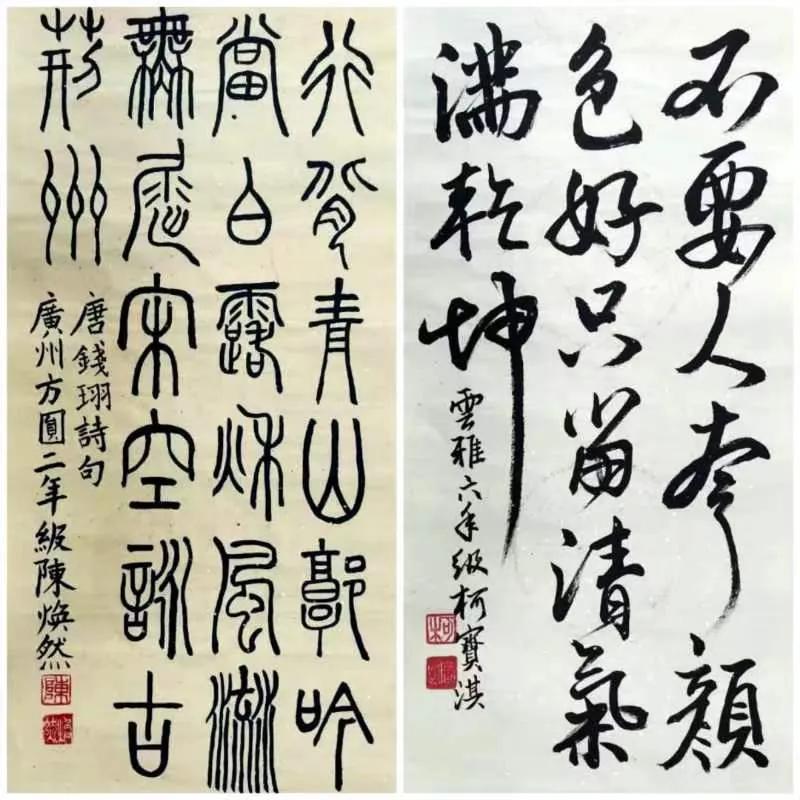 行背青山郭吟
當白露秋風流
無屈宋空詠古
荊州
唐錢珝詩句
廣州方圓二年級陳煥然
陳
不要人夸顏
色好只留清氣
滿乾坤
雲雅六年級柯寶淇
柯